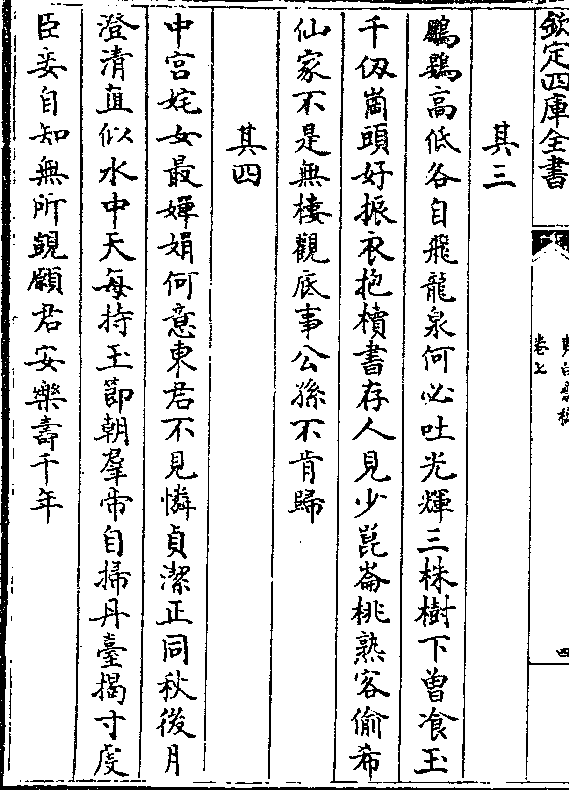 欽定四庫全書
卷七
四
其三
鵬鷃高低各自飛龍泉何必吐光輝三株樹下曾飡玉
千仭崗頭好振衣抱櫝書存人見少崑崙桃熟客偷希
仙家不是無棲觀底事公孫不肯歸
其四
中宫姹女最嬋娟何意東君不見憐貞潔正同秋後月
澄清直似水中天每持玉節朝羣帝自掃丹臺揭寸虔
臣妾自知無所覬願君安樂壽千年